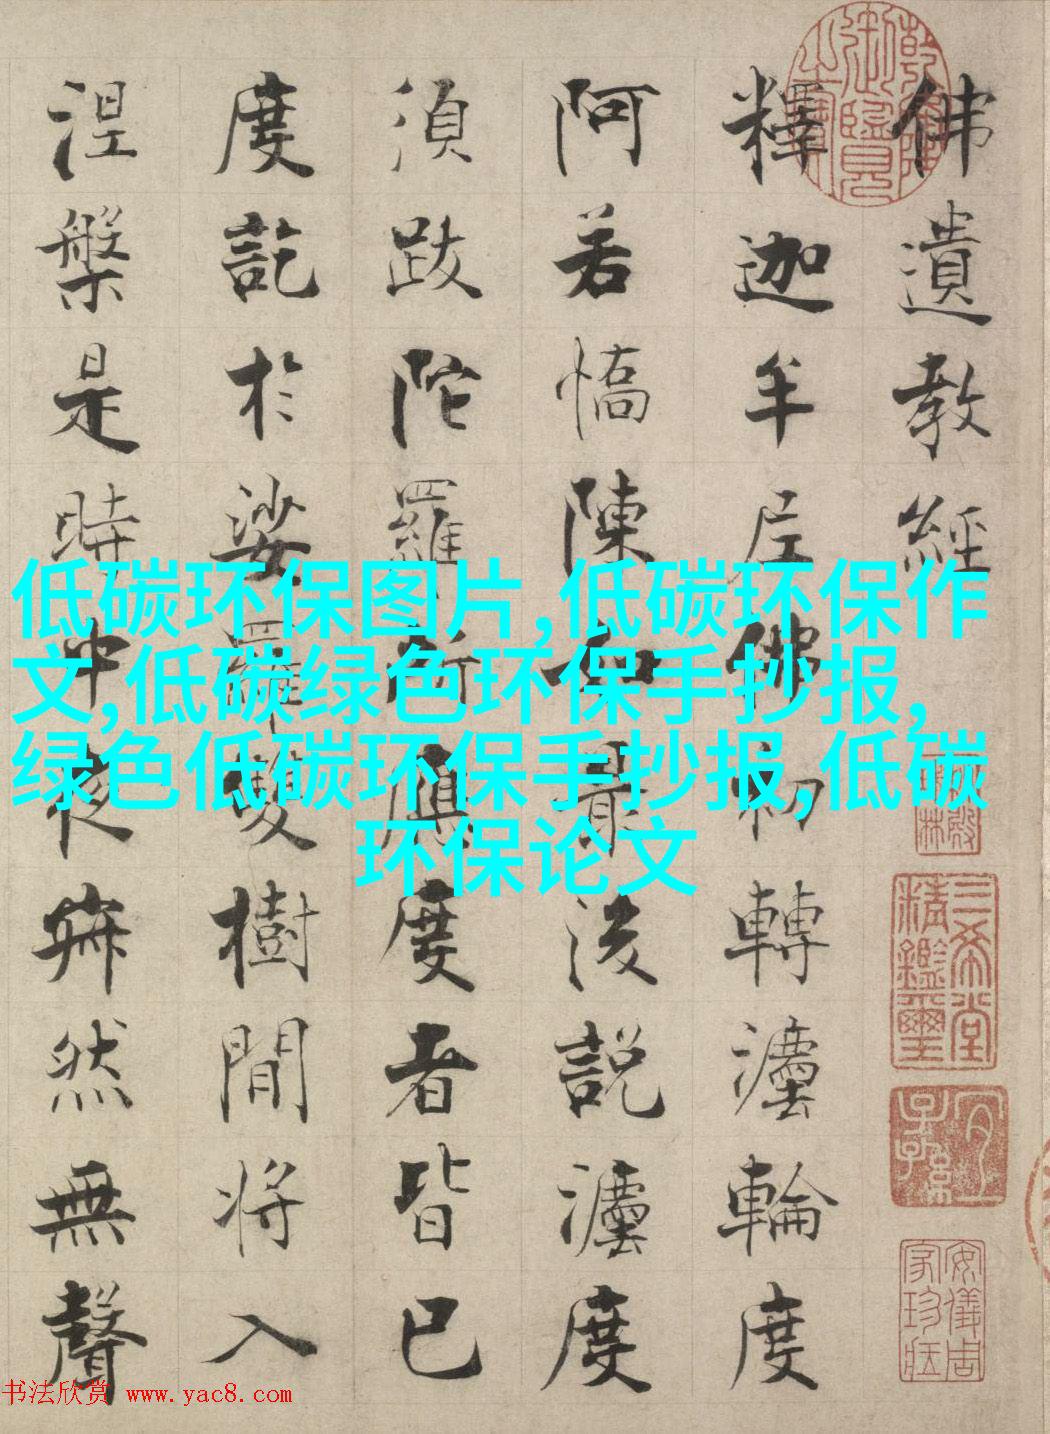 佛遺教經
釋迦牟尼佛初轉灋輪度
阿若憍陳如最後說灋度
須跋陀羅所應度者皆已
度訖於娑羅雙樹間將入
涅槃是時中夜寂然無聲
低碳环保图片,低碳环保作
文,低碳绿色环保手抄报,
绿色低碳环保手抄报,低碳
环保论文
三希堂精鑑璽
宜子孫
安儀周家珍藏
书法欣赏 www.yac8.com